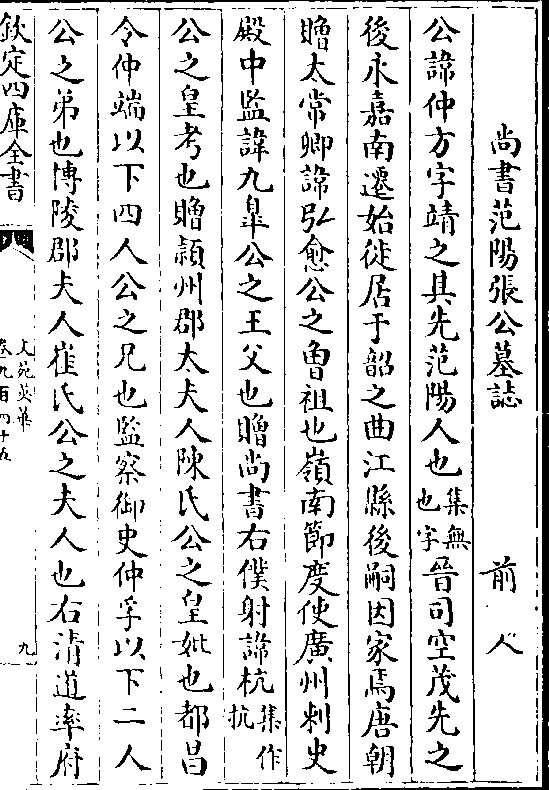 尚書范陽張公墓誌　前人
公諱仲方字靖之其先范陽人也集無也字晉司空茂先之
後永嘉南遷始徙居于韶之曲江縣後嗣因家焉唐朝
贈太常卿諱弘愈公之曾祖也嶺南節度使廣州刺史
殿中監諱九臯公之王父也贈尚書右僕射諱杭集作抗
公之皇考也贈潁州郡太夫人陳氏公之皇妣也都昌
令仲端以下四人公之兄也監察御史仲孚以下二人
公之弟也博陵郡夫人崔氏公之夫人也右清道率府
欽定四庫全書
文苑英華
卷九百四十五
九